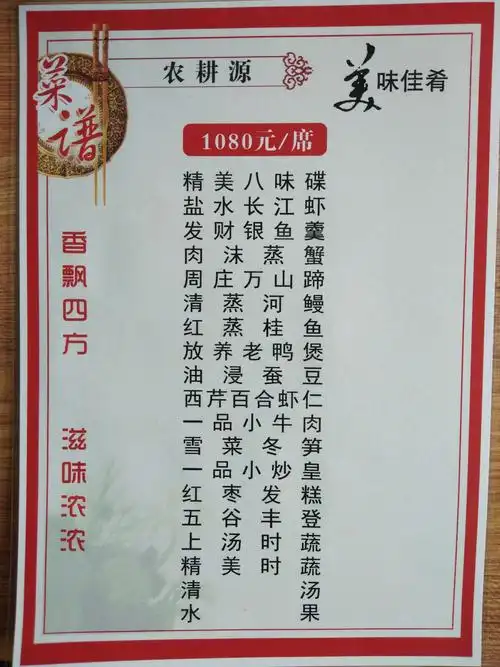 菜·谱
农耕源
美味佳肴
1080元/席
精美八味碟
盐水长江虾
发财银鱼羹
肉沫蒸蟹
周庄万山蹄
清蒸河鳗
红蒸桂鱼
放养老鸭煲
油浸蚕豆
西芹百合虾仁
一品小牛肉
雪菜冬笋
一品小炒皇
红枣发糕
五谷丰登
上汤时蔬
精美时蔬
清汤
水果
香飘四方
滋味浓浓